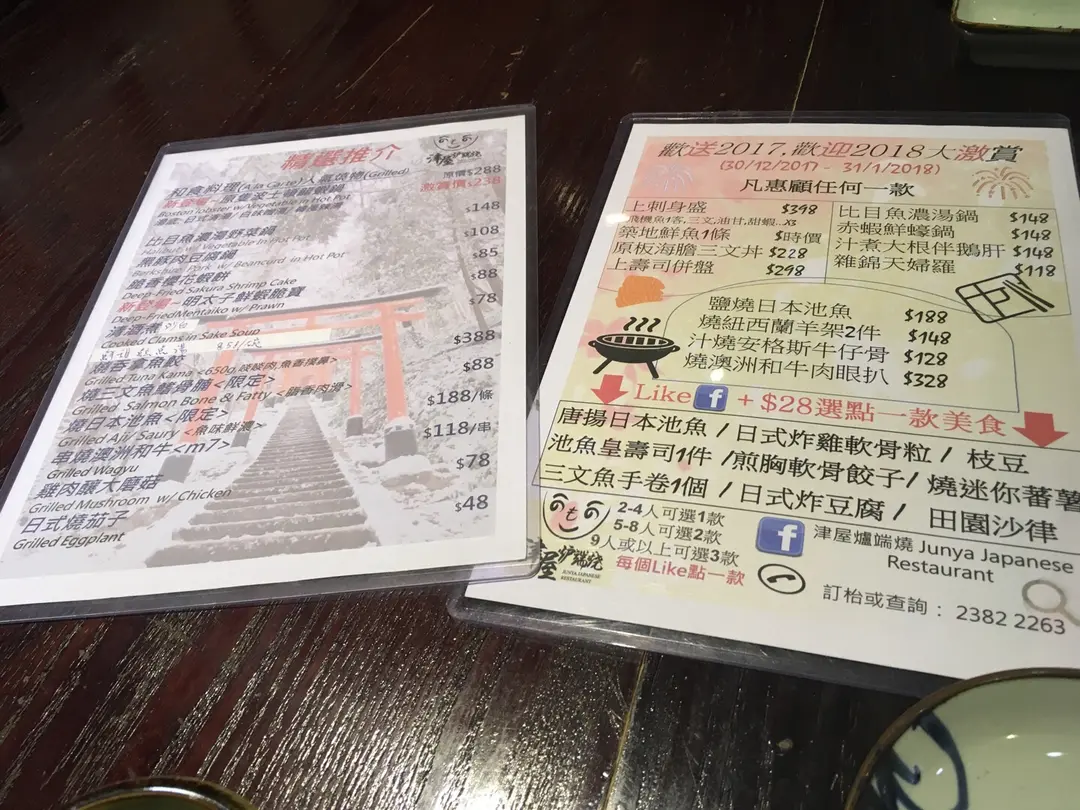 精選推介
津屋爐端燒
和食料理(A la Carte)人氣燒物(Grilled)
原價$288
激賞價$238
Boston lobster w/Vegetable in Hot Pot
$148
比目魚濃湯野菜鍋
Halibut w/ Vegetable in Hot Pot
$108
黑豚肉豆腐鍋
Berkshire Pork w/ Beancurd in Hot Pot
$85
鹽香櫻花蝦餅
Deep-Fried Sakura Shrimp Cake
$88
新登場~明太子鮮蝦脆寶
Deep-FriedMentaiko w/ Prawn
$78
清酒煮
Cooked Clams in Sake Soup
$388
燒吞拿魚鮫
Grilled Tuna Kama <650g,啖啖肉,魚香撲鼻>
$88
燒三文魚鱔骨腩<限定>
Grilled Salmon Bone & Fatty <鹽香肉滑>
$188/條
燒日本池魚<限定>
Grilled Aji/ Saury <魚味鮮濃>
$118/串
串燒澳洲和牛<m7>
Grilled Wagyu
$78
雞肉釀大蘑菇
Grilled Mushroom w/ Chicken
$48
日式燒茄子
Grilled Eggplant
歡送2017,歡迎2018大激賞
(30/12/2017 - 31/1/2018)
凡惠顧任何一款
上刺身盛 $398
飛機魚1客,三文,油甘,甜蝦..X3
築地鮮魚1條 $時價
原板海膽三文丼 $228
上壽司併盤 $298
比目魚濃湯鍋 $148
赤蝦鮮蠔鍋 $148
汁煮大根伴鵝肝 $148
雜錦天婦羅 $118
鹽燒日本池魚 $188
燒紐西蘭羊架2件 $148
汁燒安格斯牛仔骨 $128
燒澳洲和牛肉眼扒 $328
Like f + $28選點一款美食
唐揚日本池魚 / 日式炸雞軟骨粒 / 枝豆
池魚皇壽司1件 / 煎胸軟骨餃子 / 燒迷你蕃薯
三文魚手卷1個 / 日式炸豆腐 / 田園沙律
2-4人可選1款
5-8人可選2款
9人或以上可選3款
每個Like點一款
屋爐端燒
JUNYA JAPANESE
RESTAURANT
f 津屋爐端燒 Junya Japanese
Restaurant
訂枱或查詢： 2382 2263